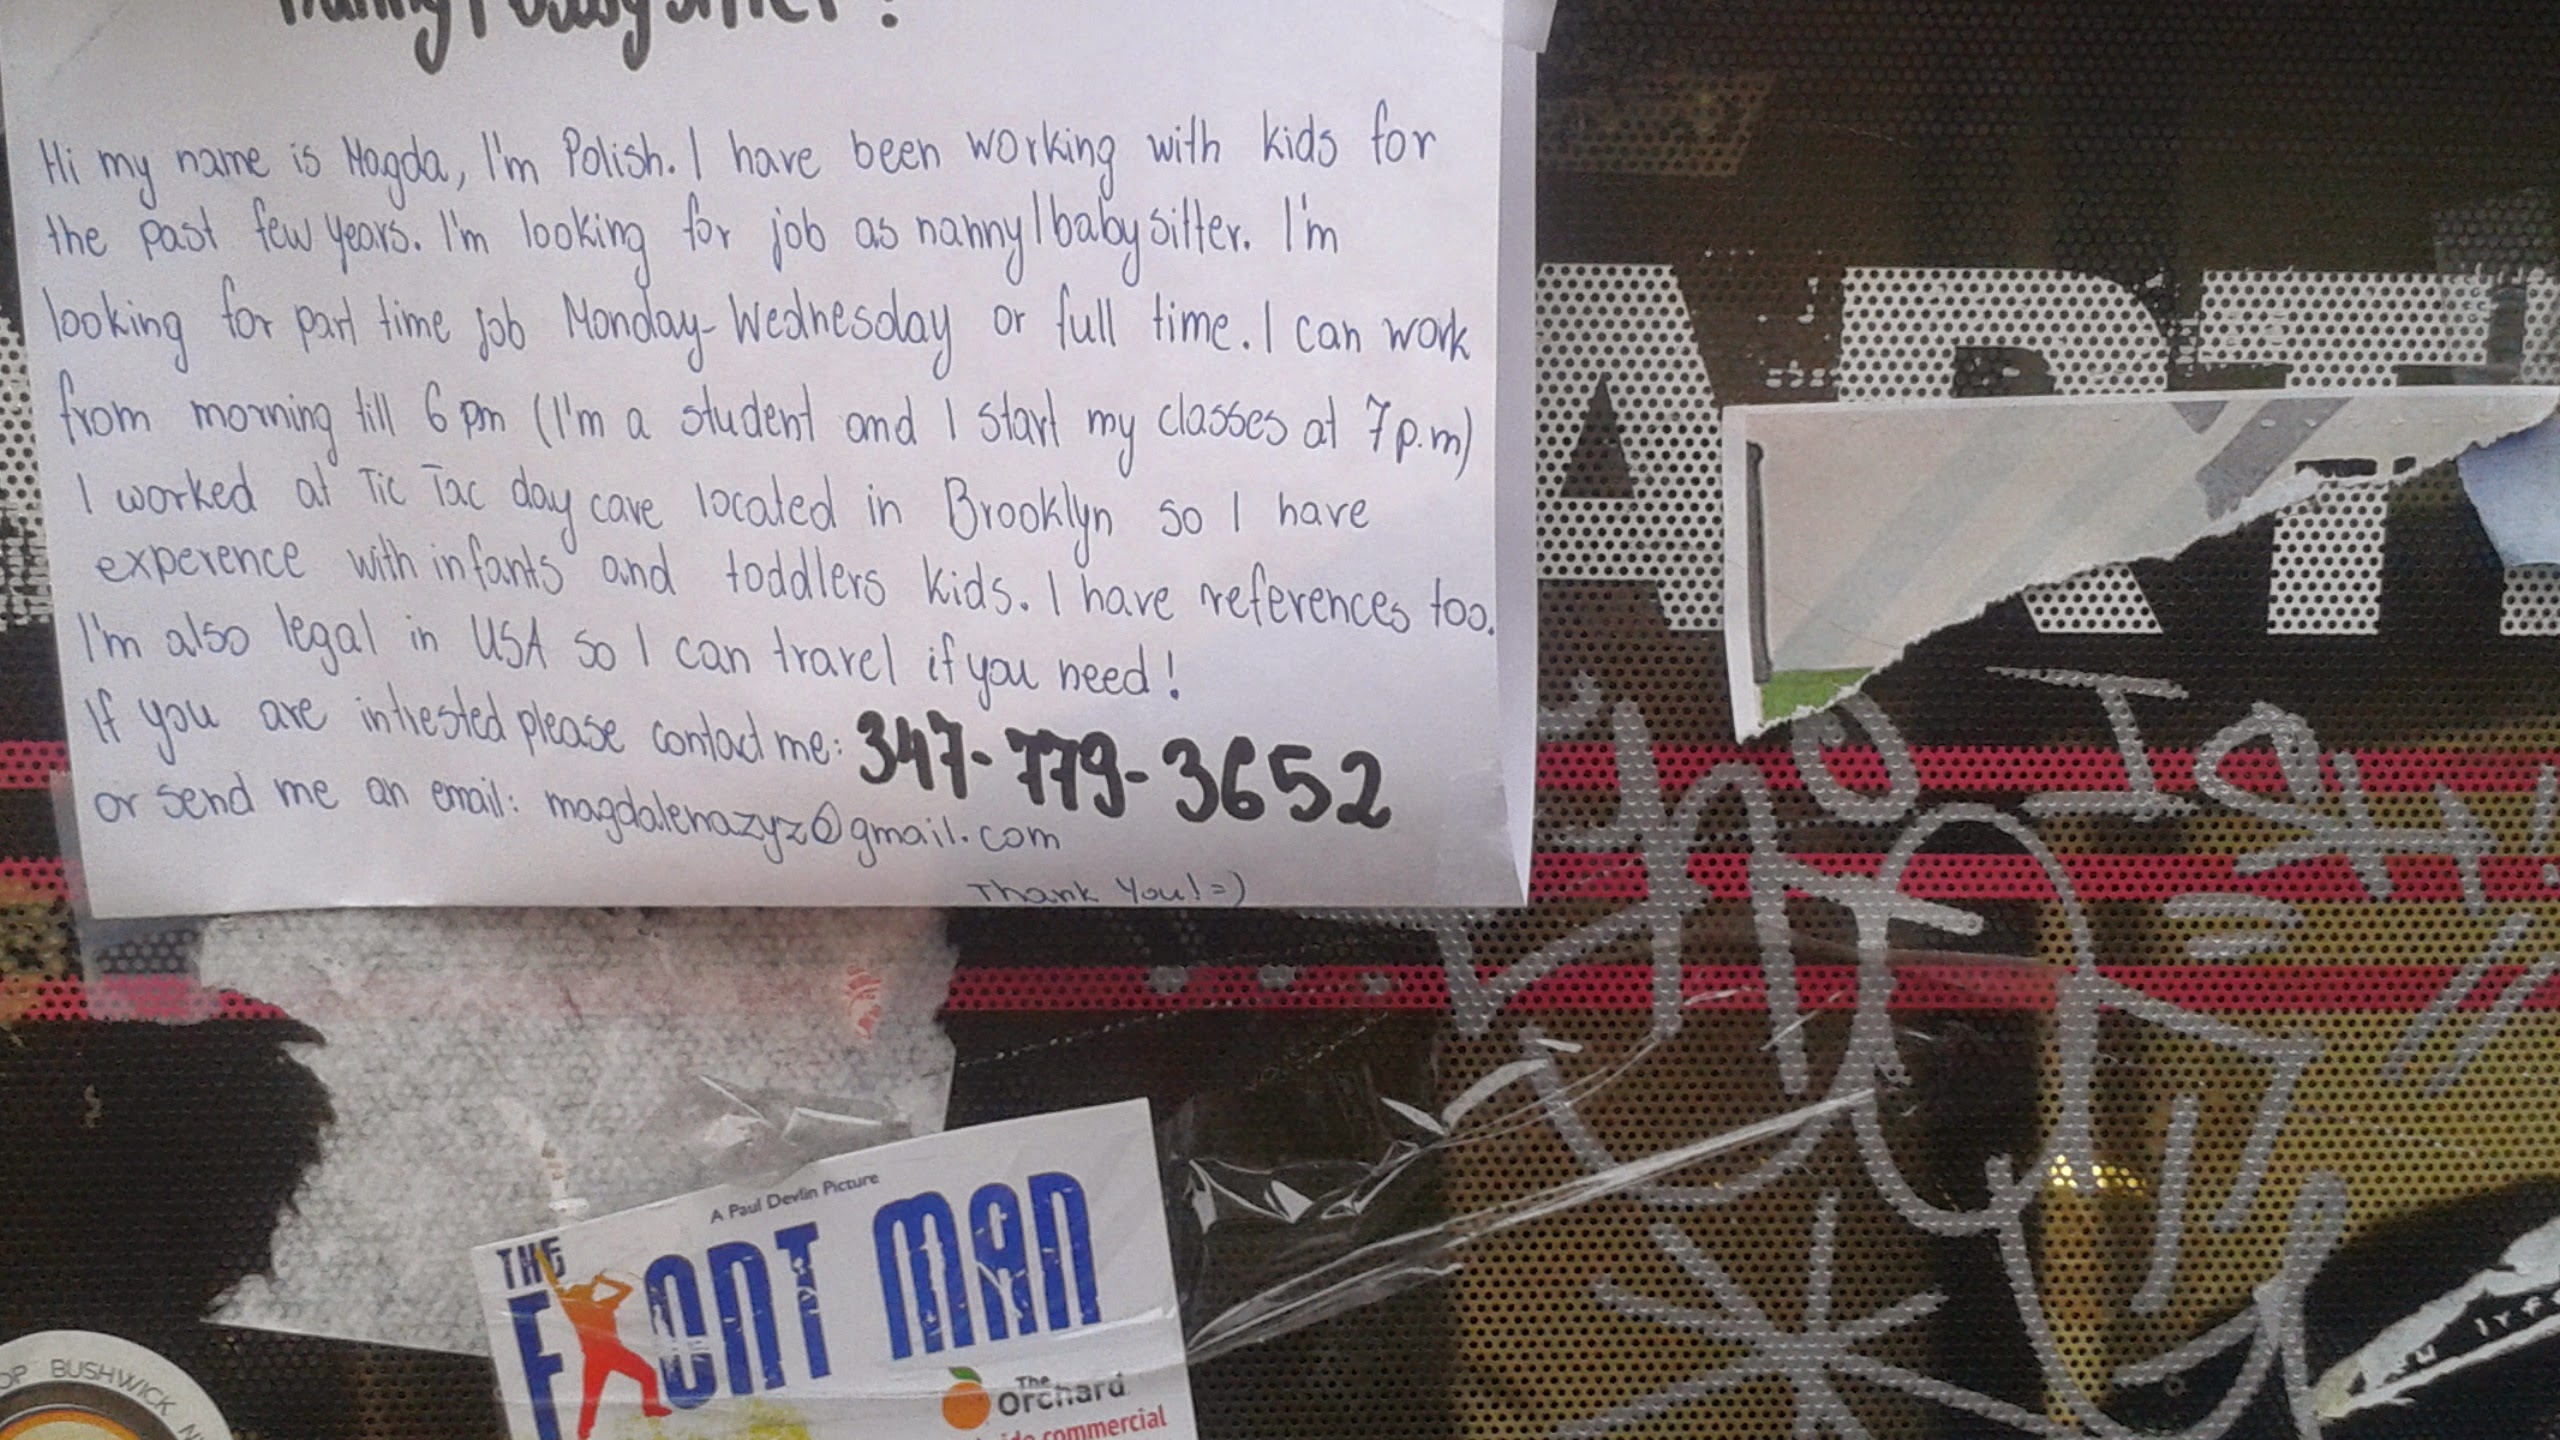 Nanny/babysitter!
Hi my name is Magda, I'm Polish. I have been working with kids for
the past few years. I'm looking for job as nanny/babysitter. I'm
looking for part time job Monday-Wednesday or full time. I can work
from morning till 6 pm (I'm a student and I start my classes at 7 p.m)
I worked at Tic Tac day care located in Brooklyn so I have
experence with infants and toddlers kids. I have references too.
I'm also legal in USA so I can travel if you need!
If you are intrested please contact me: 347-779-3652
or send me an email: magdalenazyz@gmail.com
Thank You! =)
A Paul Devlin Picture
THE
FRONT MAN
The
Orchard
commercial
BUSHWICK